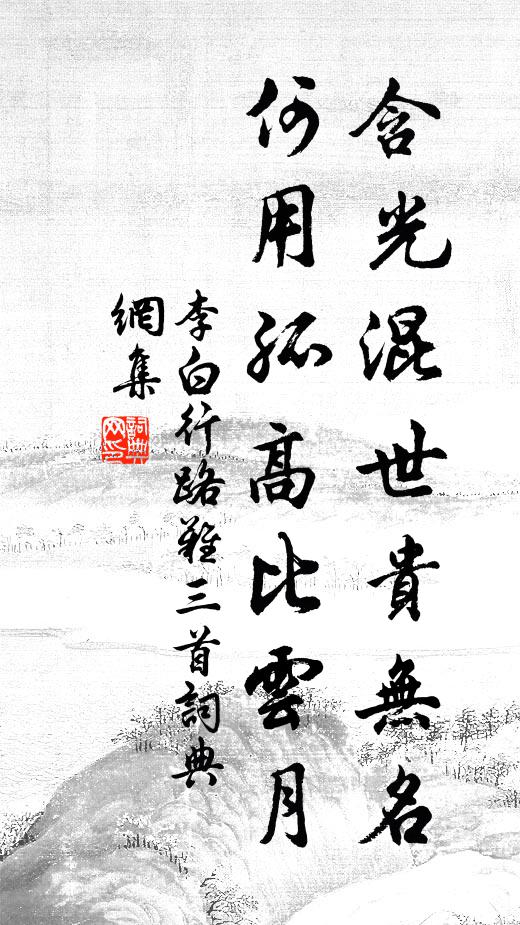 含光混世貴無名
何用孤高比雲月
李白行路難三首詞典
網集
詞典
网印